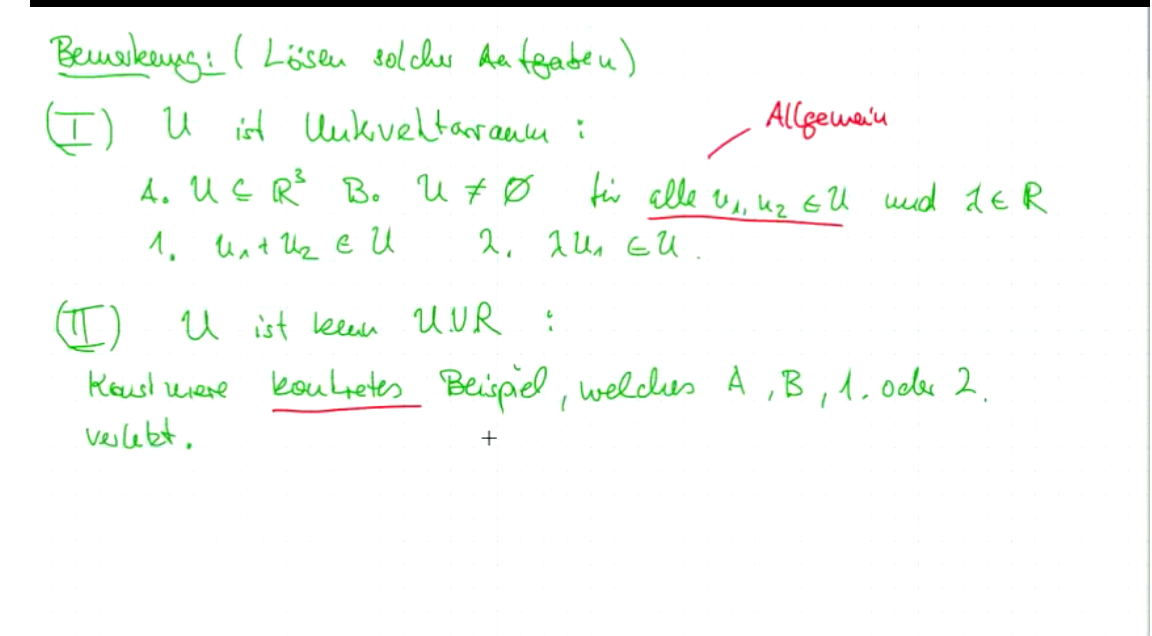 Bemerkung: (Lösen solcher Aufgaben)
(I) U ist Untervektorraum :
Allgemein
A. U ⊆ ℝ³ B. U ≠ ∅ für alle u₁, u₂ ∈ U und λ ∈ ℝ
1. u₁ + u₂ ∈ U 2. λu₁ ∈ U.
(II) U ist kein U.V.R :
Konstruiere konkretes Beispiel, welches A, B, 1. oder 2.
verletzt.